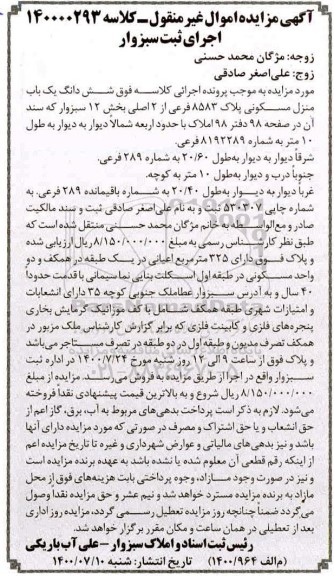 آگهی مزایده اموال غیر منقول ـ کلاسه ۱۴۰۰۰۰۲۹۳
اجرای ثبت سبزوار
زوجه: مژگان محمد حسنی
زوج: علی‌اصغر صادقی
مورد مزایده به موجب پرونده اجرائی کلاسه فوق شش دانگ یک باب
منزل مسکونی پلاک ۸۵۸۳ فرعی از ۲ اصلی بخش ۱۲ سبزوار که سند
آن در صفحه ۹۸ دفتر ۹۸ املاک با حدود اربعه شمالاً دیوار به دیوار به طول
۱۰ متر به شماره ۸۱۹۲۲۸۹ فرعی.
شرقاً دیوار به دیوار به‌طول ۲۰/۶۰ به شماره ۲۸۹ فرعی.
جنوباً درب و دیوار به‌طول ۱۰ متر به کوچه.
غرباً دیوار به دیوار به‌طول ۲۰/۴۰ به شماره باقیمانده ۲۸۹ فرعی. به
شماره چاپی ۵۳۰۳۰۷ ثبت و به نام علی‌اصغر صادقی ثبت و سند مالکیت
صادر و مع‌الواسطه به خانم مژگان محمد حسنی منتقل شده است که
طبق نظر کارشناس رسمی به مبلغ ۸/۱۵۰/۰۰۰/۰۰۰ ریال ارزیابی شده
و پلاک فوق دارای ۳۲۵ متر مربع اعیانی در یک طبقه در همکف و دو
واحد مسکونی در طبقه اول اسکلت بنایی نما سیمانی با قدمت حدودا
۴۰ سال و به آدرس سبزوار عطاملک جنوبی کوچه ۳۵ دارای انشعابات
و امتیازات شهری طبقه همکف شامل با کف موزائیک گرمایش بخاری
پنجره‌های فلزی و کابینت فلزی که برابر گزارش کارشناس ملک مزبور در
همکف تصرف مدیون و طبقه اول در دو طبقه در تصرف مستاجر می‌باشد
و پلاک فوق از ساعت ۹ الی ۱۲ روز شنبه مورخ ۱۴۰۰/۷/۲۴ در اداره ثبت
سبزوار واقع در اجرا از طریق مزایده به فروش می‌رسد. مزایده از مبلغ
۸/۱۵۰/۰۰۰/۰۰۰ ریال شروع و به بالاترین قیمت پیشنهادی نقدا فروخته
می‌شود. لازم به ذکر است پرداخت بدهی‌های مربوط به آب، برق، گاز اعم از
حق انشعاب و یا حق اشتراک و مصرف در صورتی که مورد مزایده دارای آنها
باشد و نیز بدهی‌های مالیاتی و عوارض شهرداری و غیره تا تاریخ مزایده اعم
از اینکه رقم قطعی آن معلوم شده یا نشده باشد به عهده برنده مزایده است
و نیز در صورت وجود مازاد، وجوه پرداختی بابت هزینه‌های فوق از محل
مازاد به برنده مزایده مسترد خواهد شد و نیم عشر و حق مزایده نقدا وصول
می‌گردد ضمناً چنانچه روز مزایده تعطیل رسمی گردد، مزایده روز اداری
بعد از تعطیلی در همان ساعت و مکان مقرر برگزار خواهد شد.
رئیس ثبت اسناد و املاک سبزوار – علی آب باریکی
(م‌الف ۱۴۰۰/۹۶۴) تاریخ انتشار: شنبه ۱۴۰۰/۰۷/۱۰